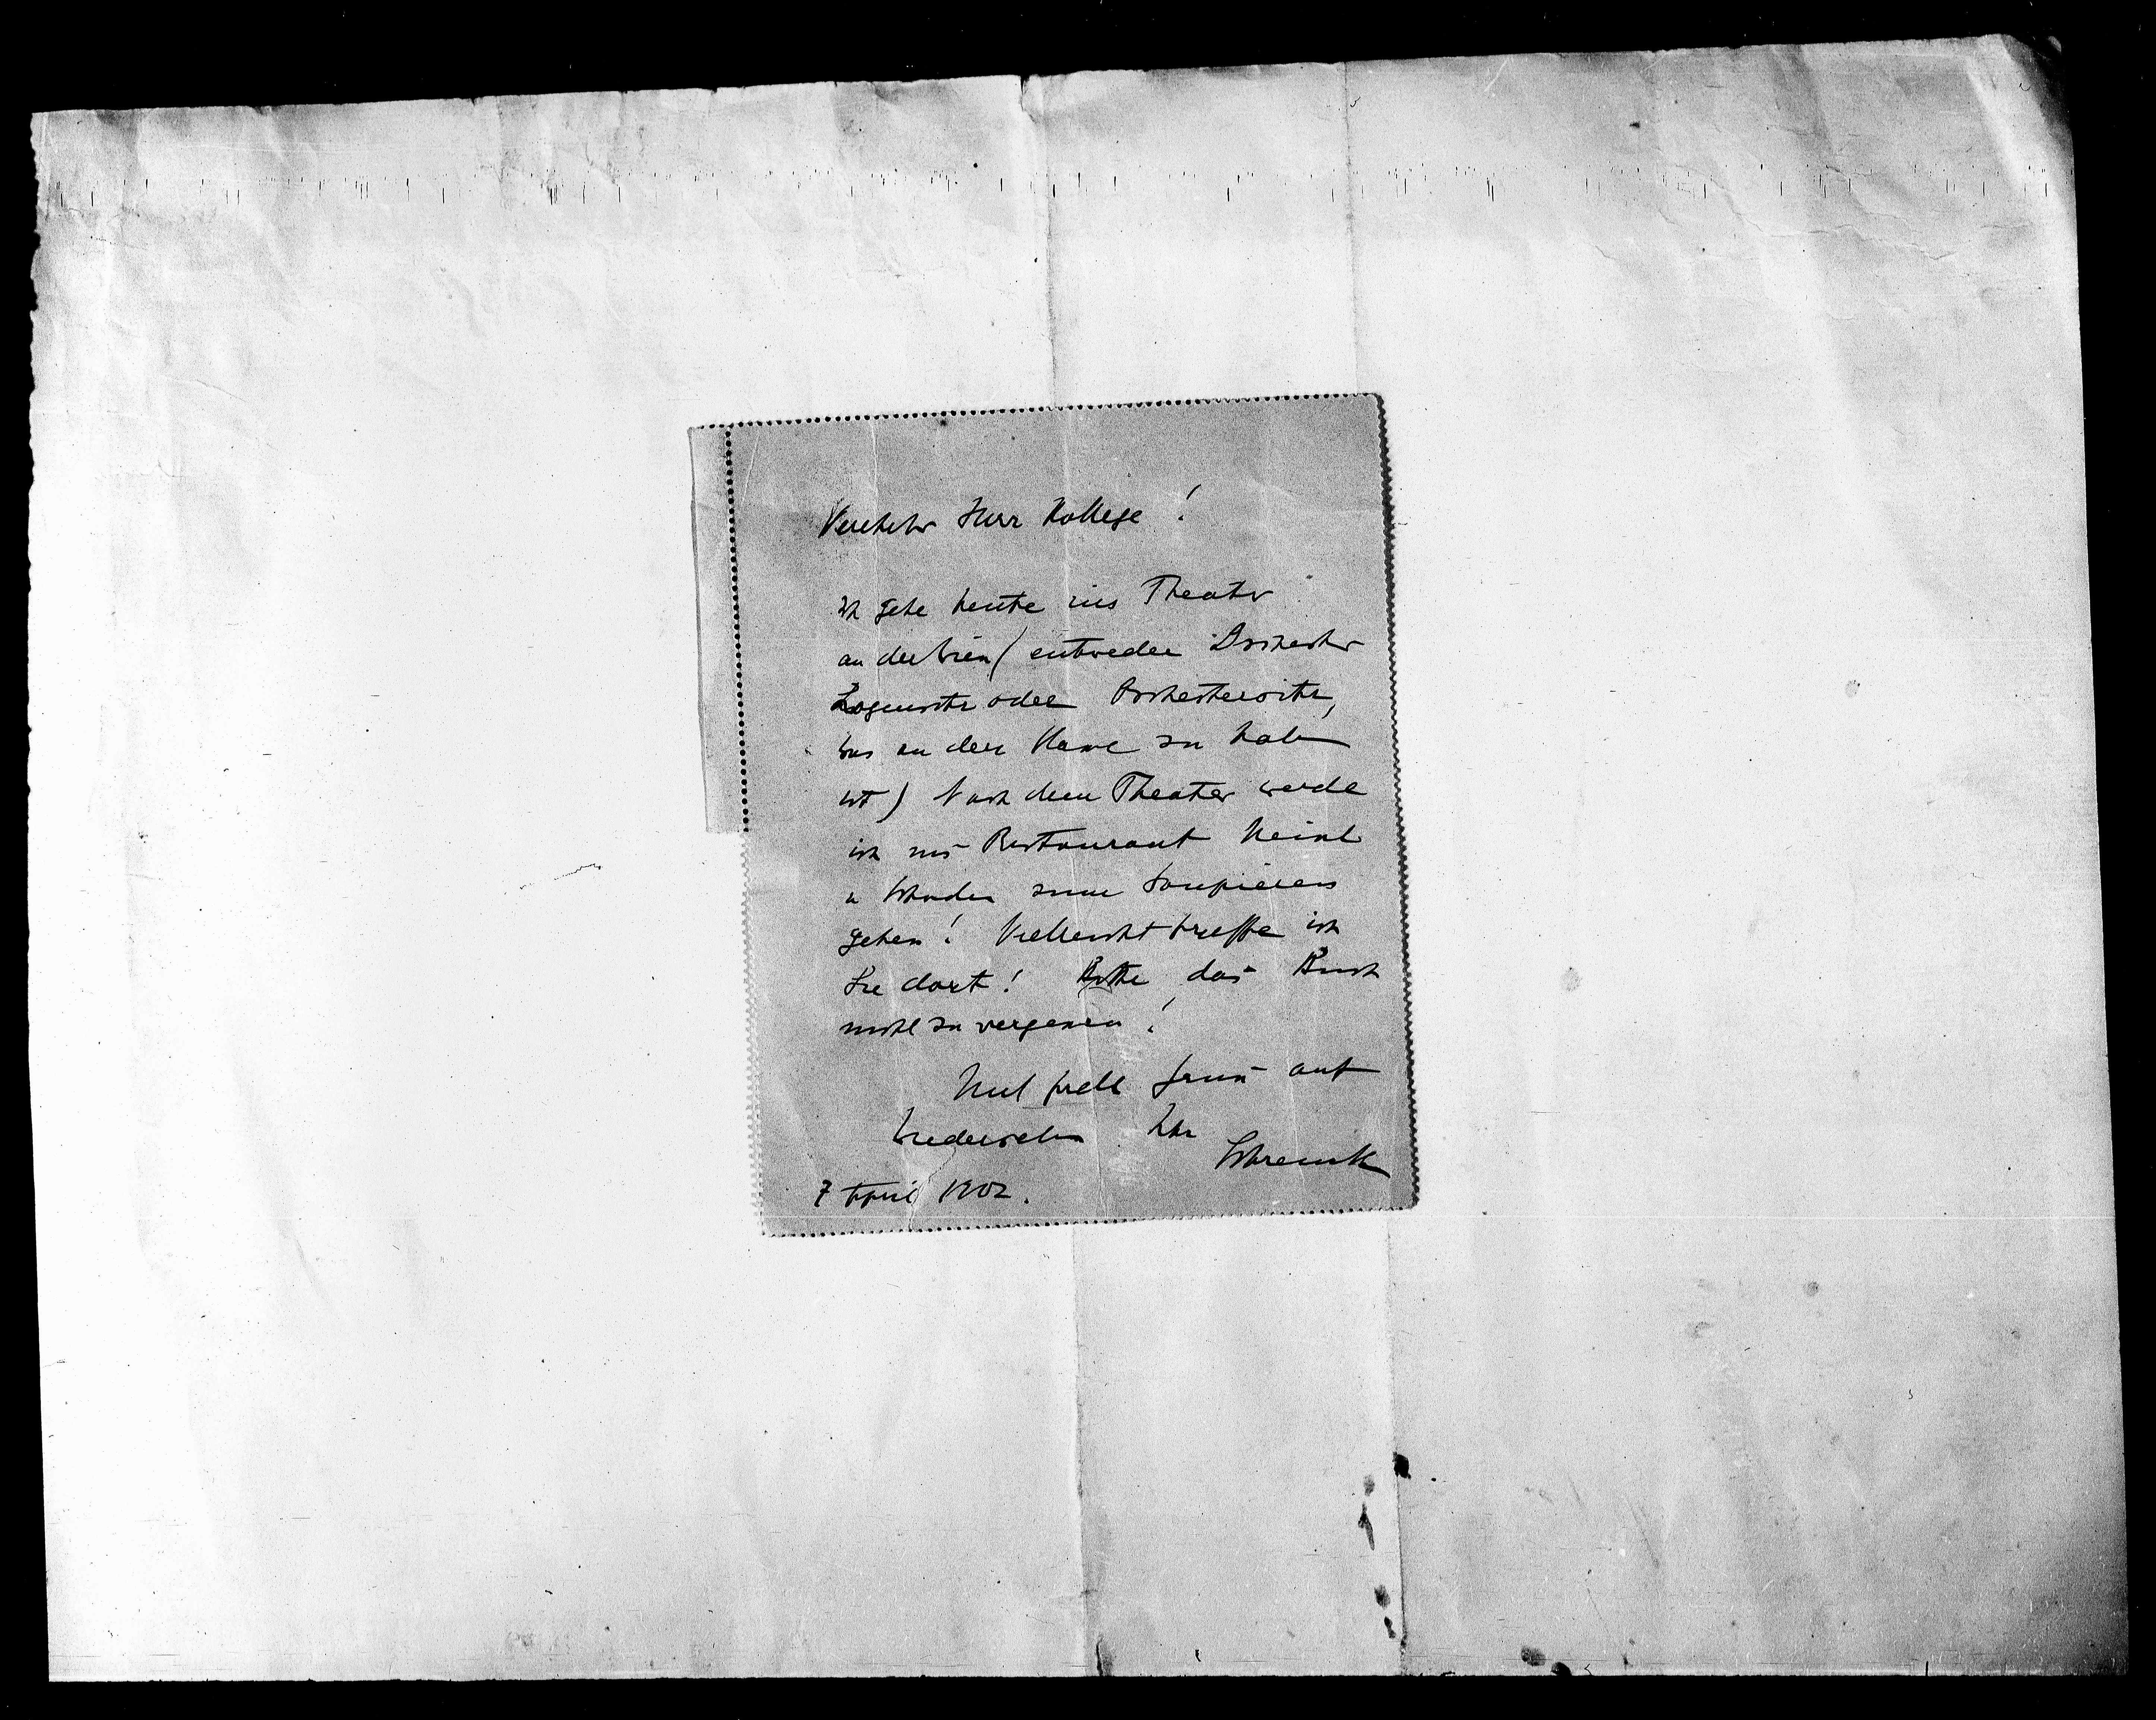 Verehrter Herr Kollege!
Ich gehe heute ins Theater
an der Wien (entweder Orchester
Logensitz oder Orchestersitz,
was an der Kasse zu haben
ist) Nach dem Theater werde
ich ins Restaurant
u zum Soupieren
gehen! Vielleicht treffe ich
Sie dort! Bitte das Buch
nicht zu vergessen!
Mit Gruss auf
Wiedersehen Ihr
7 April 1902.